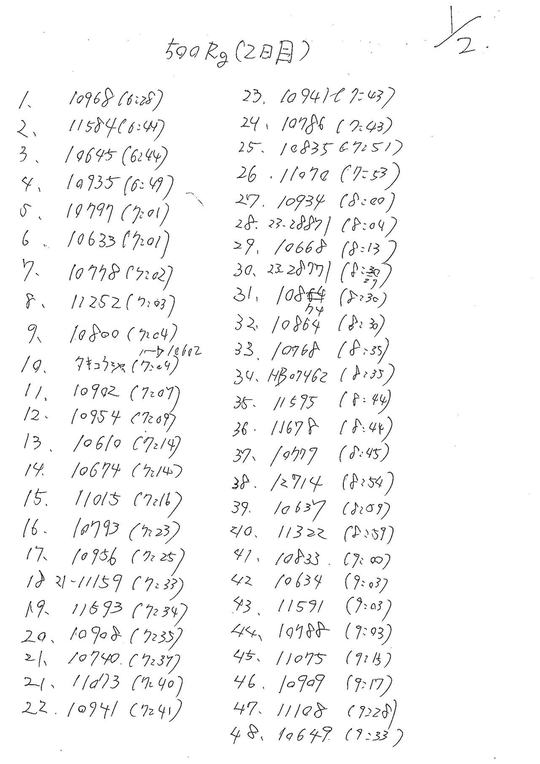 1/2.
500Kg(2日目)
1. 10968(6:28)
2、 11584(6:44)
3. 10645(6:44)
4. 10935(6:49)
5. 10797(7:01)
6. 10633(7:01)
7. 10778(7:02)
8. 11252(7:03)
9. 10800(7:04)
→10602
10. (7:04)
11. 10902(7:07)
12. 10954(7:09)
13. 10610(7:14)
14. 10674(7:14)
15. 11015(7:16)
16. 10793(7:23)
17. 10956(7:25)
18 21-11159(7:33)
19. 11593(7:34)
20. 10908(7:35)
21. 10740.(7:37)
21. 11073(7:40)
22. 10941(7:41)
23. (7:43)
24. 10786(7:43)
25. 10835(7:51)
26 11070(7:53)
27. 10934(8:00)
28. 23.28871(8:04)
29. 10668(8:13)
30. 23.28771(8:
31. (8:30)
74
32. 10864(8:30)
33. 10768(8:35)
34. HB07462(8:35)
35. 11595(8:44)
36. 11678(8:44)
37. 10777(8:45)
38. 12714(8:54)
39. 10637(8:59)
40. 11322(8:59)
41. 10833.(9:00)
42 10634(9:03)
43. 11591(9:03)
44、 10788(9:03)
45. 11075(9:13)
46. 10909(9:17)
47. 11108(9:28)
48. 10649(9:33)